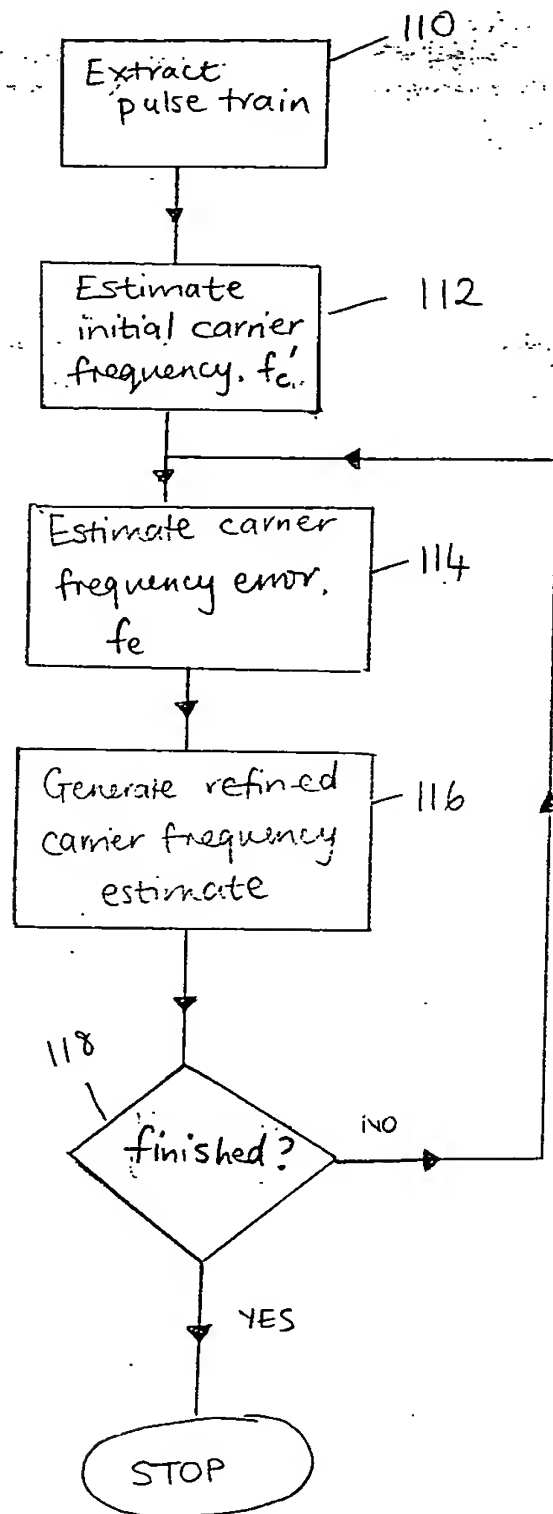 110
Extract
pulse train
Estimate
initial carrier
frequency, fc'
112
Estimate carrier
frequency error,
fe
114
Generate refined
carrier frequency
estimate
116
118
finished?
NO
YES
STOP